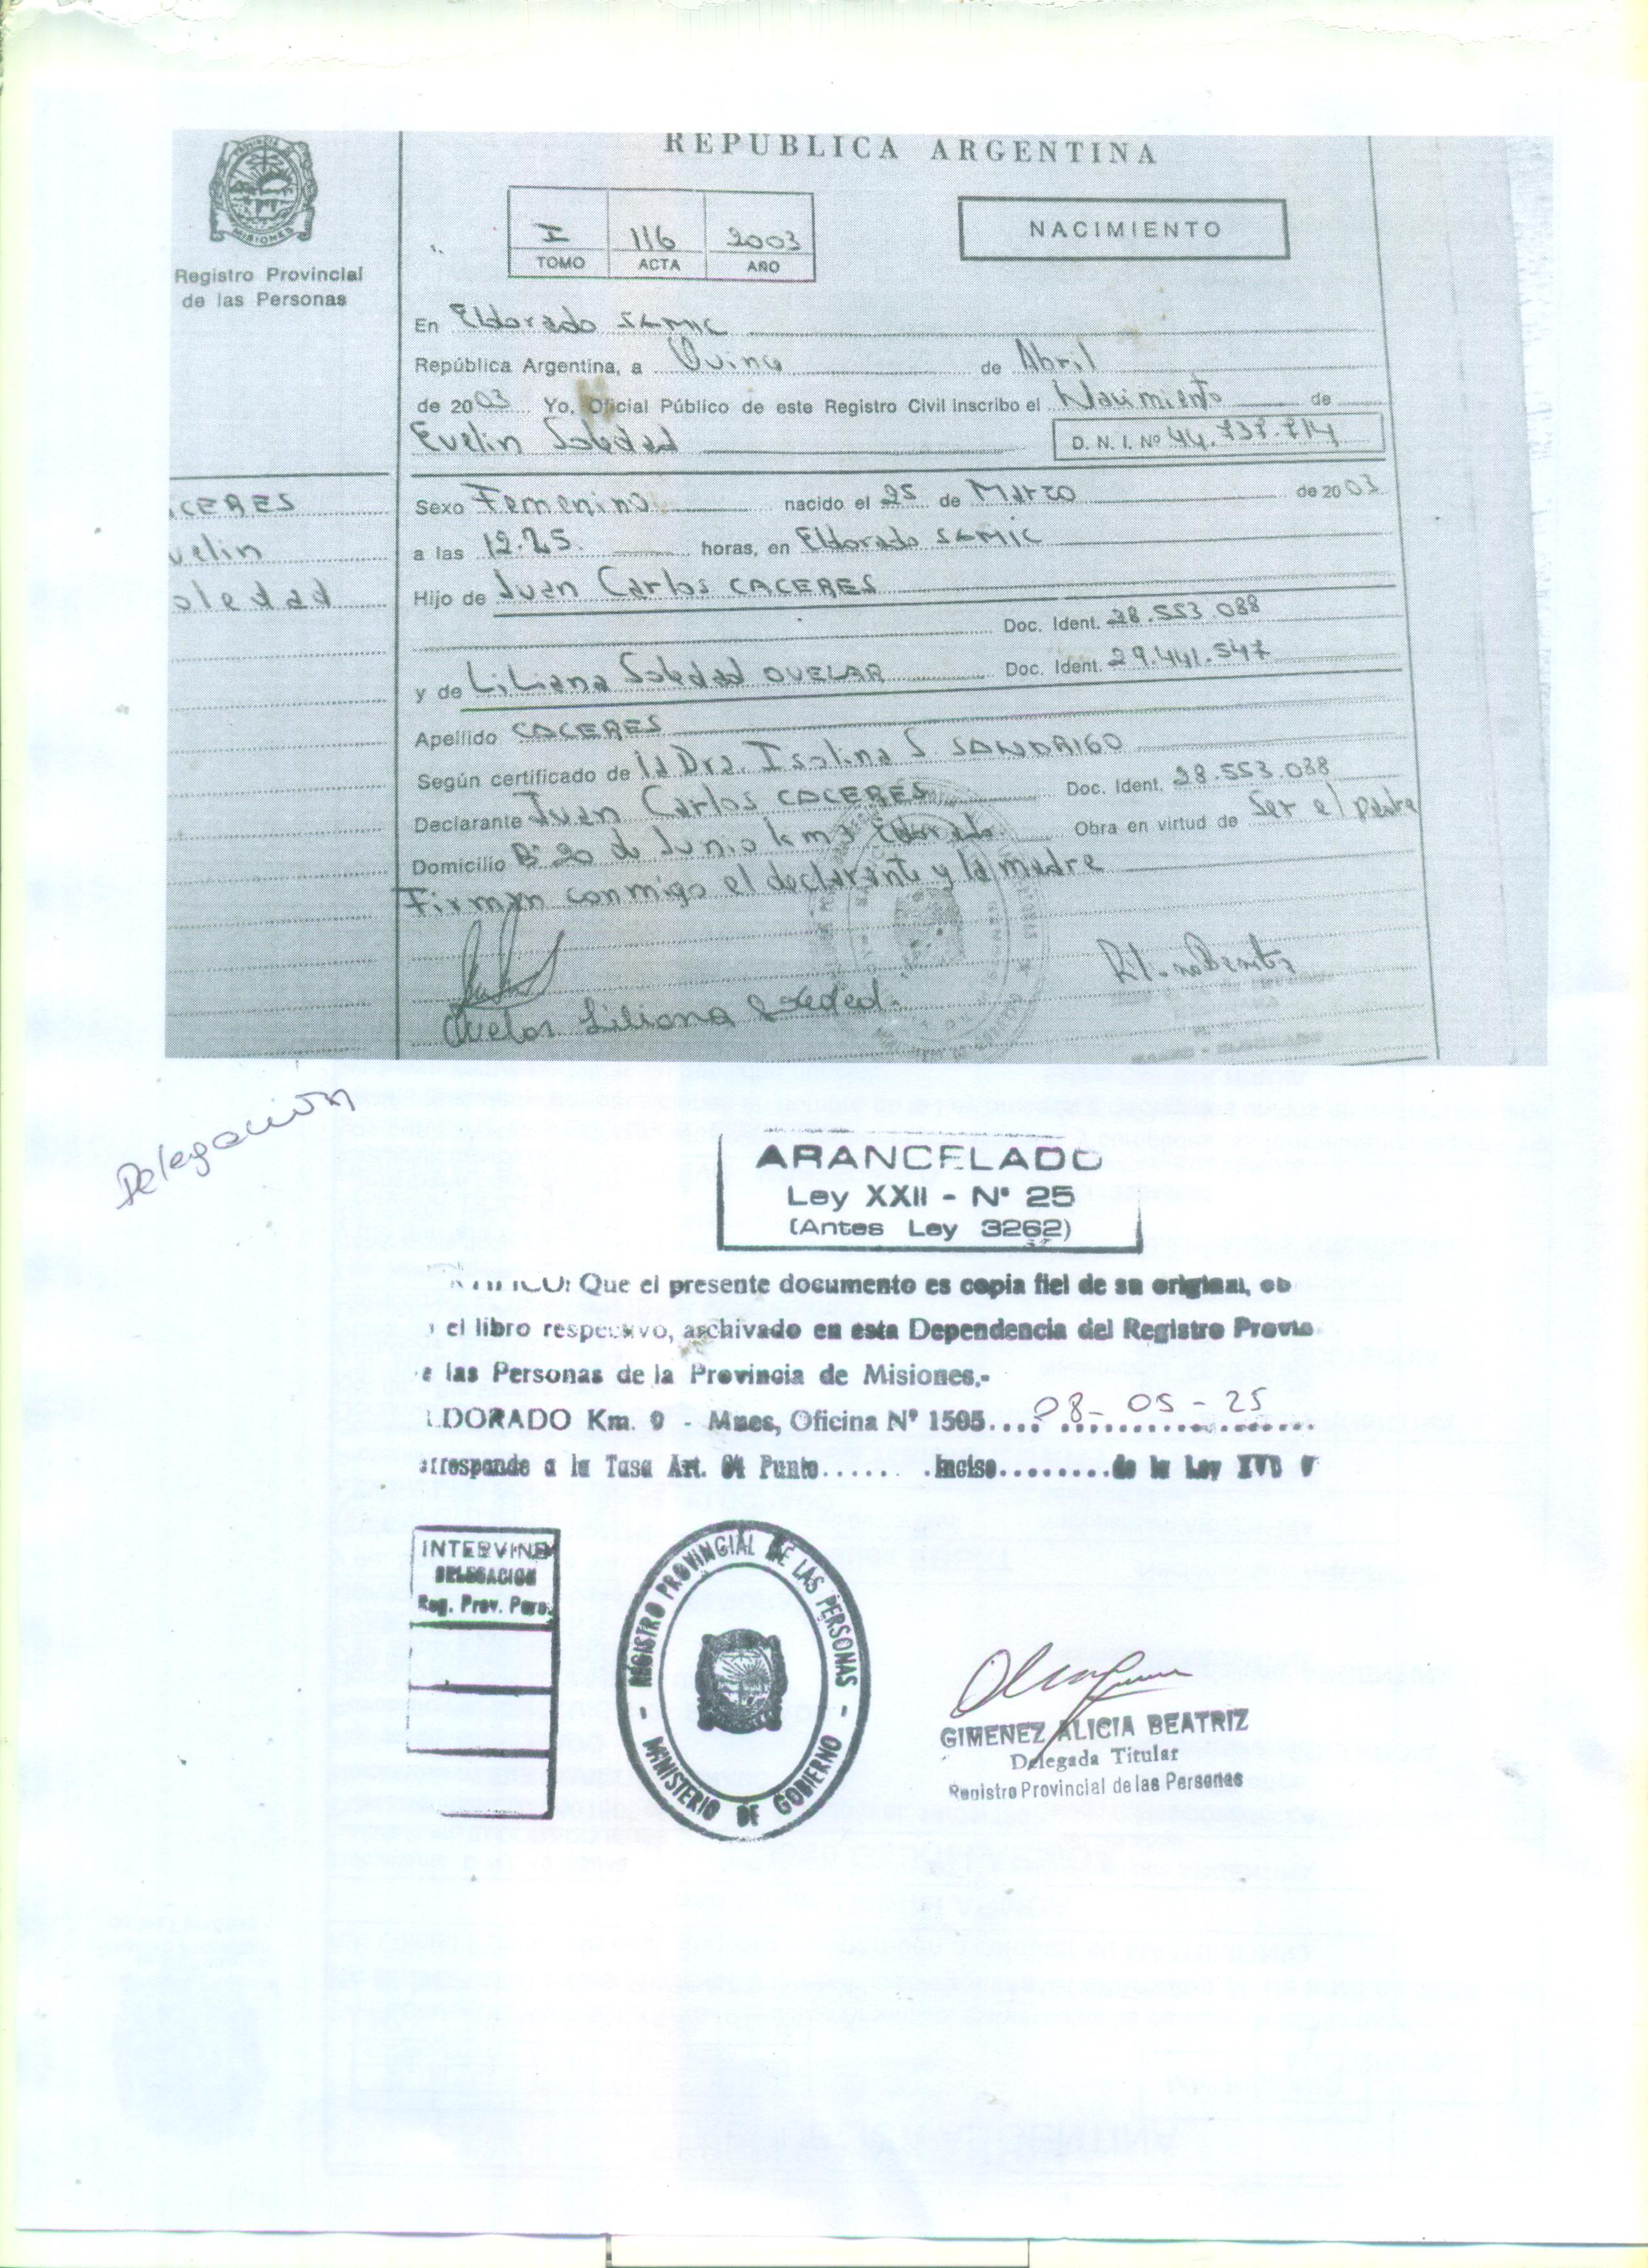 REPUBLICA ARGENTINA
PROVINCIA
MISIONES
Registro Provincial
de las Personas
I 116 2003
TOMO ACTA AÑO
NACIMIENTO
En Eldorado SAMIC
República Argentina, a Quince de Abril
de 2003 Yo, Oficial Público de este Registro Civil inscribo el Nacimiento de
Evelin Soledad D. N. I. Nº 44.737.714
CERES
velin
oledad
Sexo Femenino nacido el 25 de Marzo de 2003
a las 12.25. horas, en Eldorado SAMIC
Hijo de Juan Carlos CACERES
Doc. Ident. 28.553.088
y de Liliana Soledad OVELAR Doc. Ident. 29.441.547
Apellido CACERES
Según certificado de la Dra. Isolina S. SANDRIGO
Declarante Juan Carlos CACERES Doc. Ident. 28.553.088
Domicilio Bº 20 de Junio km 7 Eldorado Obra en virtud de Ser el padre
Firman conmigo el declarante y la madre
Ovelar Liliana Soledad.
Delegación
ARANCELADO
Ley XXII - Nº 25
(Antes Ley 3262)
FICO: Que el presente documento es copia fiel de su original, ob
el libro respectivo, archivado en esta Dependencia del Registro Provin
e las Personas de la Provincia de Misiones.-
LDORADO Km. 9 - Mnes, Oficina Nº 1505.... 08-05-25
rresponde a la Tasa Art. 04 Punto...... .Inciso........de la Ley XVII
INTERVINE
DELEGACION
Reg. Prov. Pers.
REGISTRO PROVINCIAL DE LAS PERSONAS
- MINISTERIO DE GOBIERNO -
GIMENEZ ALICIA BEATRIZ
Delegada Titular
Registro Provincial de las Personas